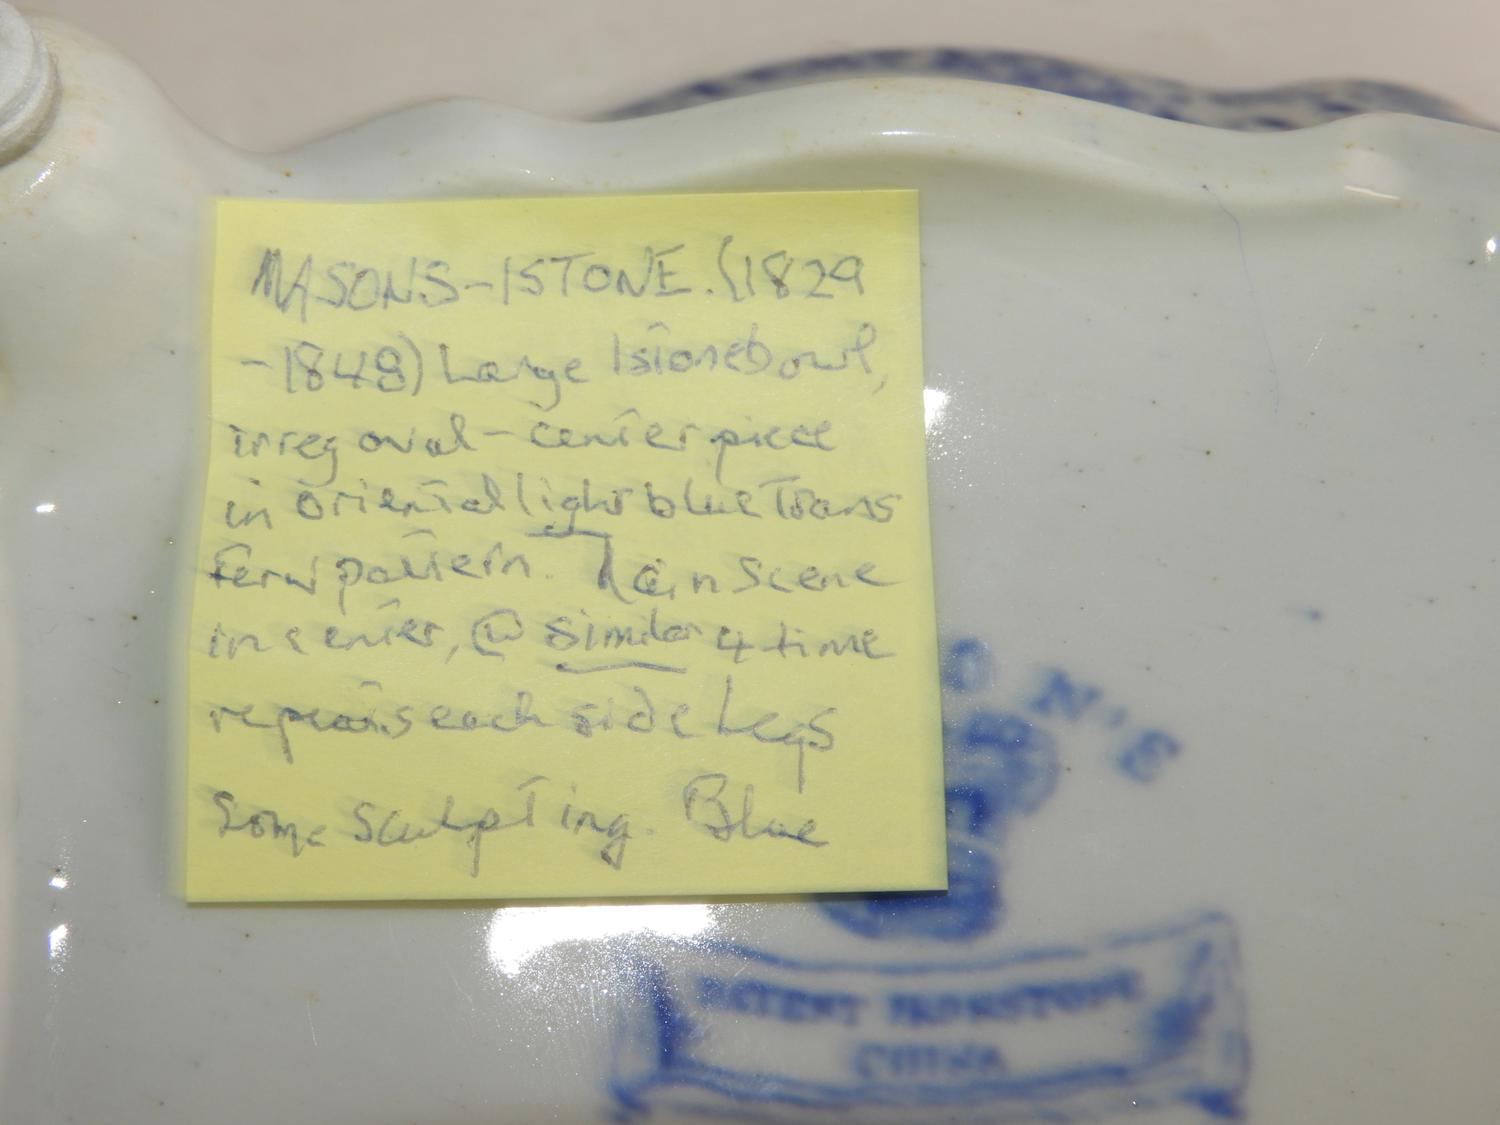 MASONS-ISTONE. (1829
-1848) Large Istonebowl,
irreg oval-centerpiece
in oriental light blue Trans
ferw pattern. Main Scene
in center, @ similar 4 time
repeats each side Legs
Some sculpting. Blue
ON'S
PATENT IRONSTONE
CHINA